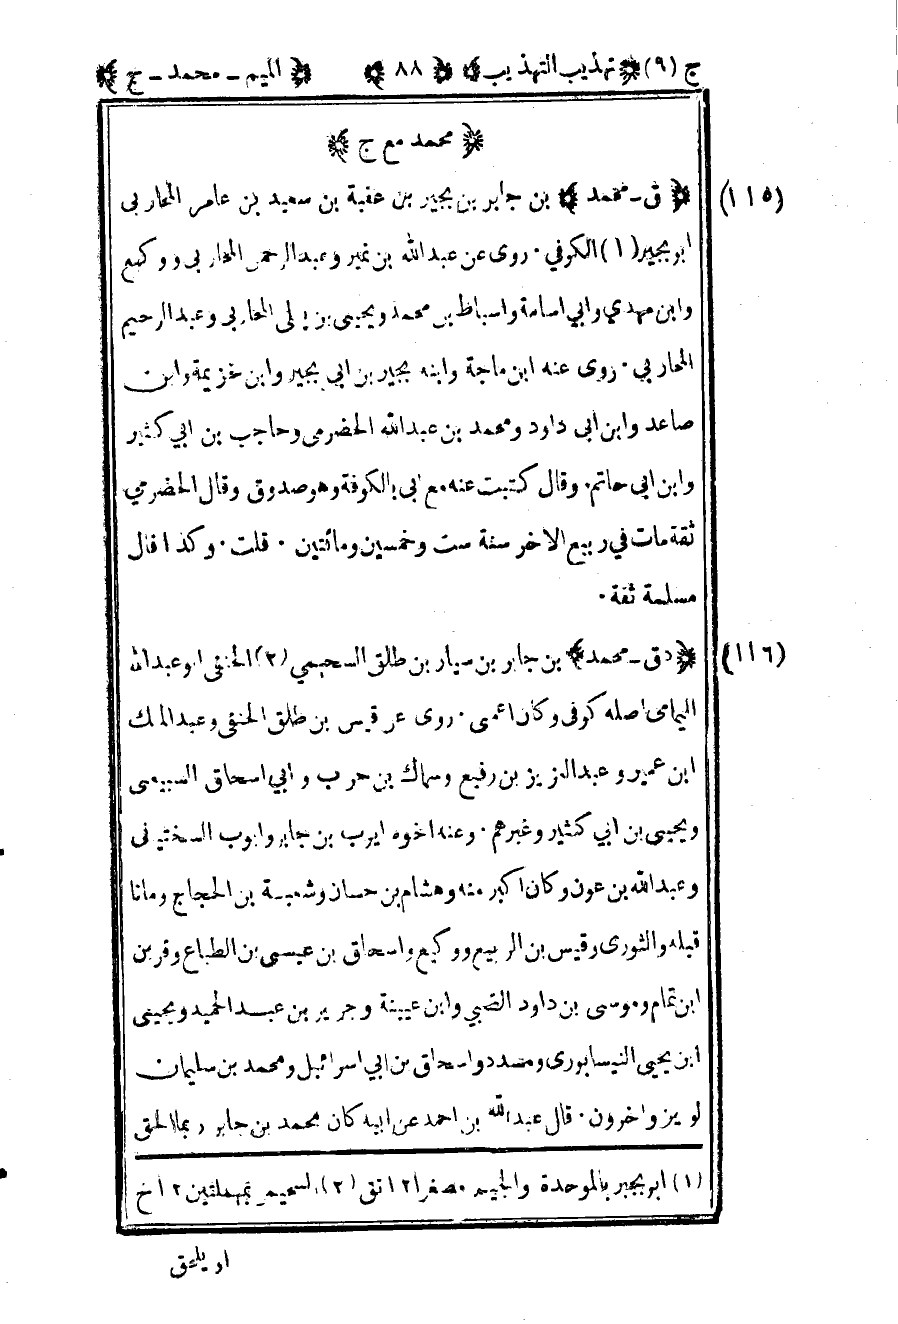 ج (٩) ﴿ تهذيب التهذيب ﴾ ﴿ ٨٨ ﴾ ﴿ الميم ـ محمد ـ ج ﴾
﴿ محمد مع ج ﴾
(١١٥) ﴿ ق ـ محمد ﴾ بن جابر بن بجير بن عقبة بن سعيد بن عامر المحاربى
ابو بجير (١) الكوفي ٠ روى عن عبدالله بن نمير وعبدالرحمن المحاربى ووكيع
وابن مهدي وابي اسامة واسباط بن محمد ويحيى بن يعلى المحاربى وعبدالرحيم
المحاربي ٠ روى عنه ابن ماجة وابنه بجير بن ابى بجير وابن خزيمة وابن
صاعد وابن ابى داود ومحمد بن عبدالله الحضرمى وحاجب بن ابي كثير
وابن ابى حاتم ٠ وقال كتبت عنه مع ابى بالكوفة وهو صدوق وقال الحضرمي
ثقة مات في ربيع الآخر سنة ست وخمسين ومائتين ٠ قلت ٠ وكذا قال
مسلمة ثقة ٠
(١١٦) ﴿ دق ـ محمد ﴾ بن جابر بن سيار بن طلق السحيمي (٢) الحنفى ابو عبدالله
اليمامى اصله كوفى وكان اعمى ٠ روى عن قيس بن طلق الحنفى وعبدالملك
ابن عمير وعبدالعزيز بن رفيع وسماك بن حرب وابي اسحاق السبيعى
ويحيى بن ابي كثير وغيرهم ٠ وعنه اخوه ايوب بن جابر وايوب السختيانى
وعبدالله بن عون وكان اكبر منه وهشام بن حسان وشعبة بن الحجاج وماتا
قبله والثورى وقيس بن الربيع ووكيع واسحاق بن عيسى بن الطباع وقرين
ابن تمام وموسى بن داود الضبي وابن عيينة وجرير بن عبدالحميد ويحيى
ابن يحيى النيسابورى ومسدد واسحاق بن ابي اسرائيل ومحمد بن سليمان
لوين وآخرون ٠ قال عبدالله بن احمد عن ابيه كان محمد بن جابر ربما الحق
(١) ابو بجير بالموحدة والجيم مصغرا ١٢ تق (٢) السحيمي بمهملتين ١٢ خ
او يلحق